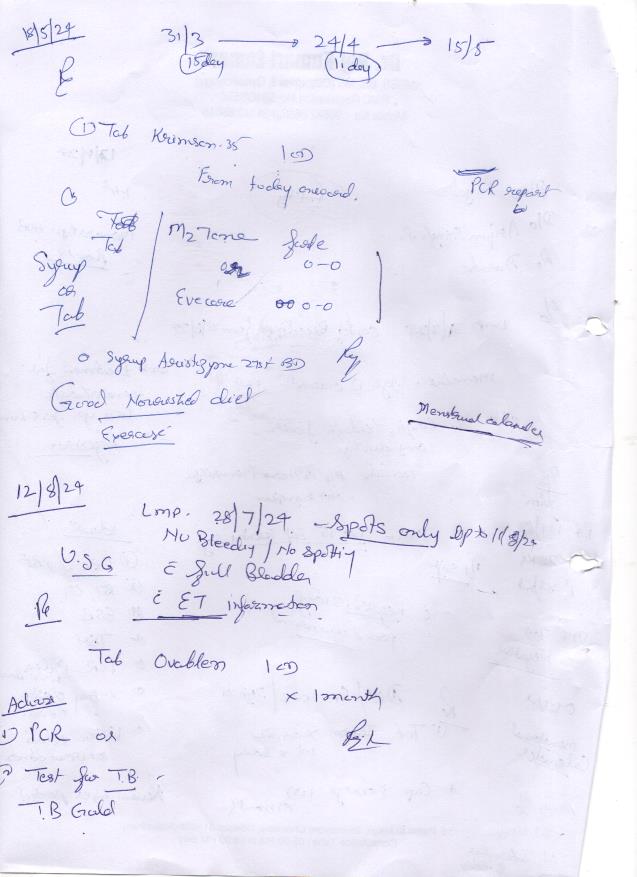 15/5/24
31/3 → 24/4 → 15/5
15 day 11 day
Rx
① Tab Krimson-35
1 OD
From today onward.
PCR report
Tab
Tab
M2Tone forte
Syrup or 0-0
or
Tab Evecare 0-0
Syrup Aristozyme 2tsf BD
Good Nourished diet
Exercise
Menstrual calander
12/8/24
Lmp. 28/7/24. - Spots only upto 1/8/24
No Bleeding / No Spotting
U.S.G c̄ full Bladder
Rx c̄ ET information
Tab Ovablem 1 OD
x 1 month
Advise
1) PCR or
2) Test for T.B -
T.B Gold